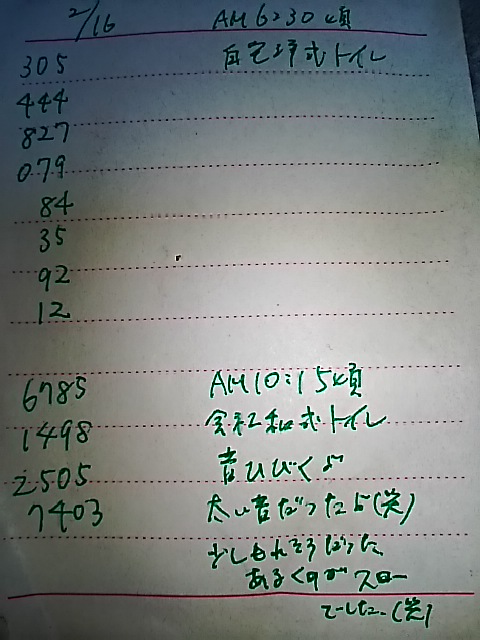 2/16 AM 6:30頃
305 自宅洋式トイレ
444
827
079
84
35
92
12
6785 AM10:15頃
1498 会社和式トイレ
2505 音ひびくよ
7403 太い音だったよ(笑)
少しもれそうだった
あるくのがスロー
でした(笑)